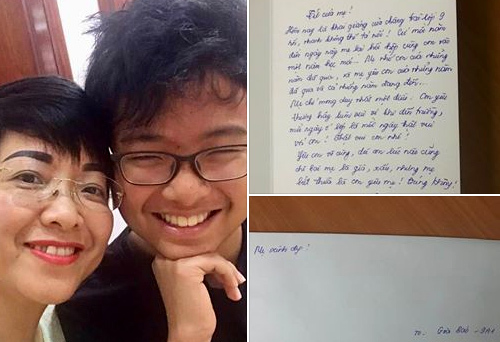 Tét của mẹ!
Hôm nay là khai giảng của chàng trai lớp 9
rồi, nhanh không thể tả nổi! Cứ mỗi năm
đến ngày này mẹ lại hồi hộp cùng con vào
một năm học mới... Mẹ nhớ con của những
năm đã qua, và mẹ yêu con của những năm
đã qua và cả những năm đang đến...
Mẹ chỉ mong duy nhất một điều: Con yêu
thương hãy luôn vui vẻ khi đến trường,
mỗi ngày ở lớp là một ngày thật vui
với con! Thật vui con nhé!
Yêu con vô cùng, dù con lúc nào cũng
chê bai mẹ là già, xấu, nhưng mẹ
biết thừa là con yêu mẹ! Đúng không!
Mẹ xinh đẹp!
To: Gia Bảo - 9A1